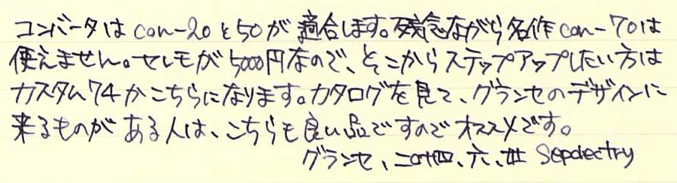 コンバータはcon-20と50が適合します。残念ながら名作con-70は
使えません。セレモが5000円なので、そこからステップアップしたい方は
カスタム74かこちらになります。カタログを見て、グランセのデザインに
来るものがある人は、こちらも良い品ですのでオススメです。
グランセ、二十四、六、廿 Sepdectry